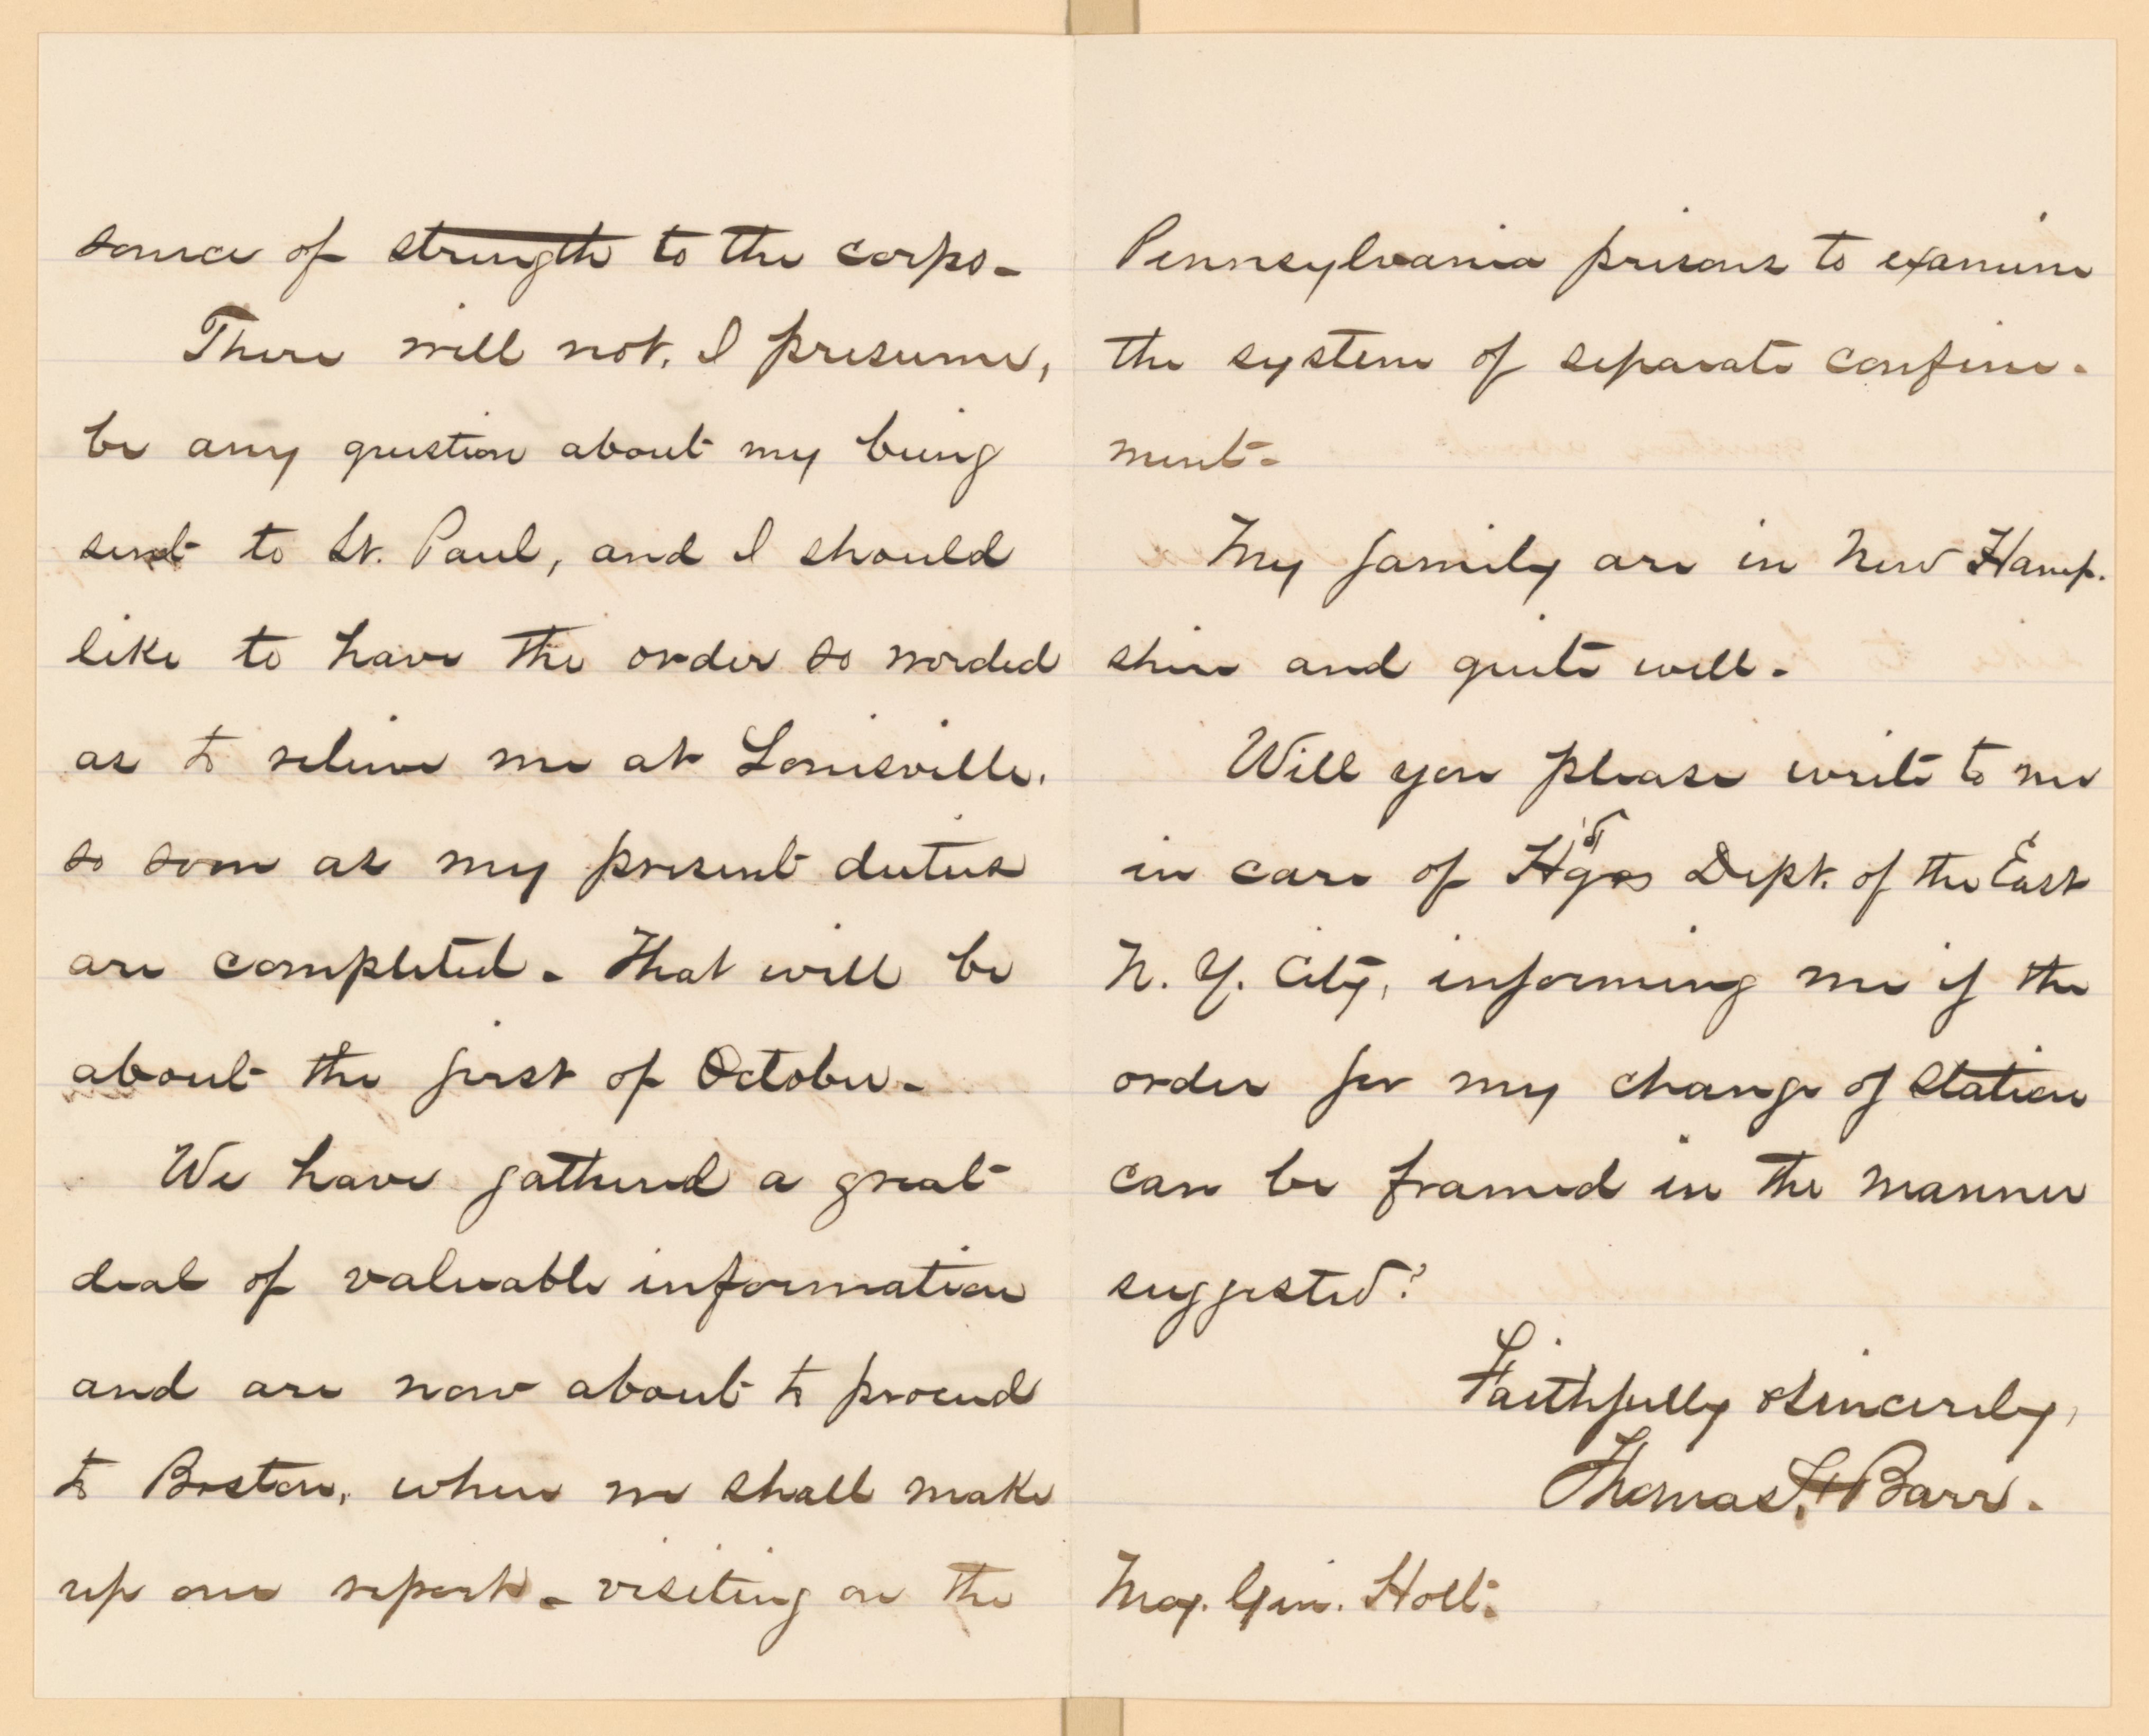 source of strength to the corps.
There will not, I presume,
be any question about my being
sent to St. Paul, and I should
like to have the order so worded
as to relieve me at Louisville,
so soon as my present duties
are completed. That will be
about the first of October.
We have gathered a great
deal of valuable information
and are now about to proceed
to Boston, where we shall make
up our report - visiting on the
Pennsylvania prisons to examine
the system of separate confine-
ment.
My family are in New Hamp-
shire and quite well.
Will you please write to me
in care of Hdqrs Dept. of the East
N. Y. City, informing me if the
order for my change of station
can be framed in the manner
suggested?
Faithfully & sincerely,
Thomas F. Barr.
Maj. Gen. Holt.